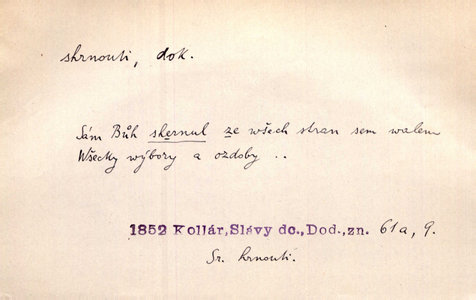 shrnouti, dok.
Sám Bůh skernul ze wšech stran sem walem
Wšecky wýbory a ozdoby ..
1852 Kollár, Slávy dc., Dod., zn. 61a, 9.
Sr. hrnouti.